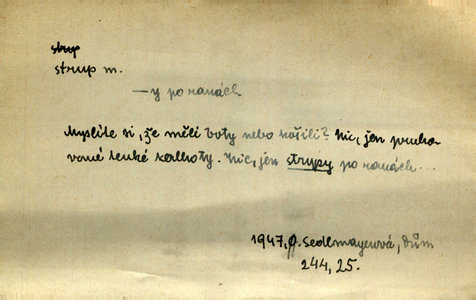 strup
strup m.
—y po ranách
Myslíte si, že měli boty nebo košili? Nic, jen pruho-
vané tenké kalhoty. Nic, jen strupy po ranách...
1947, A. Sedlmayerová, Dům
244, 25.